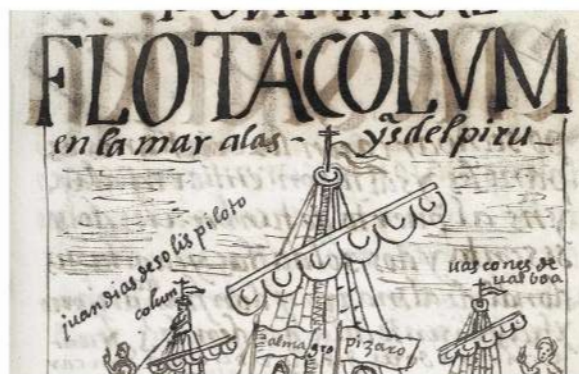 PONTIFICAL
FLOTA·COLVM
en la mar a las - yṣ del piru -
juan dias de solis piloto
colum
uas cones de
ualboa
almagro
pizaro